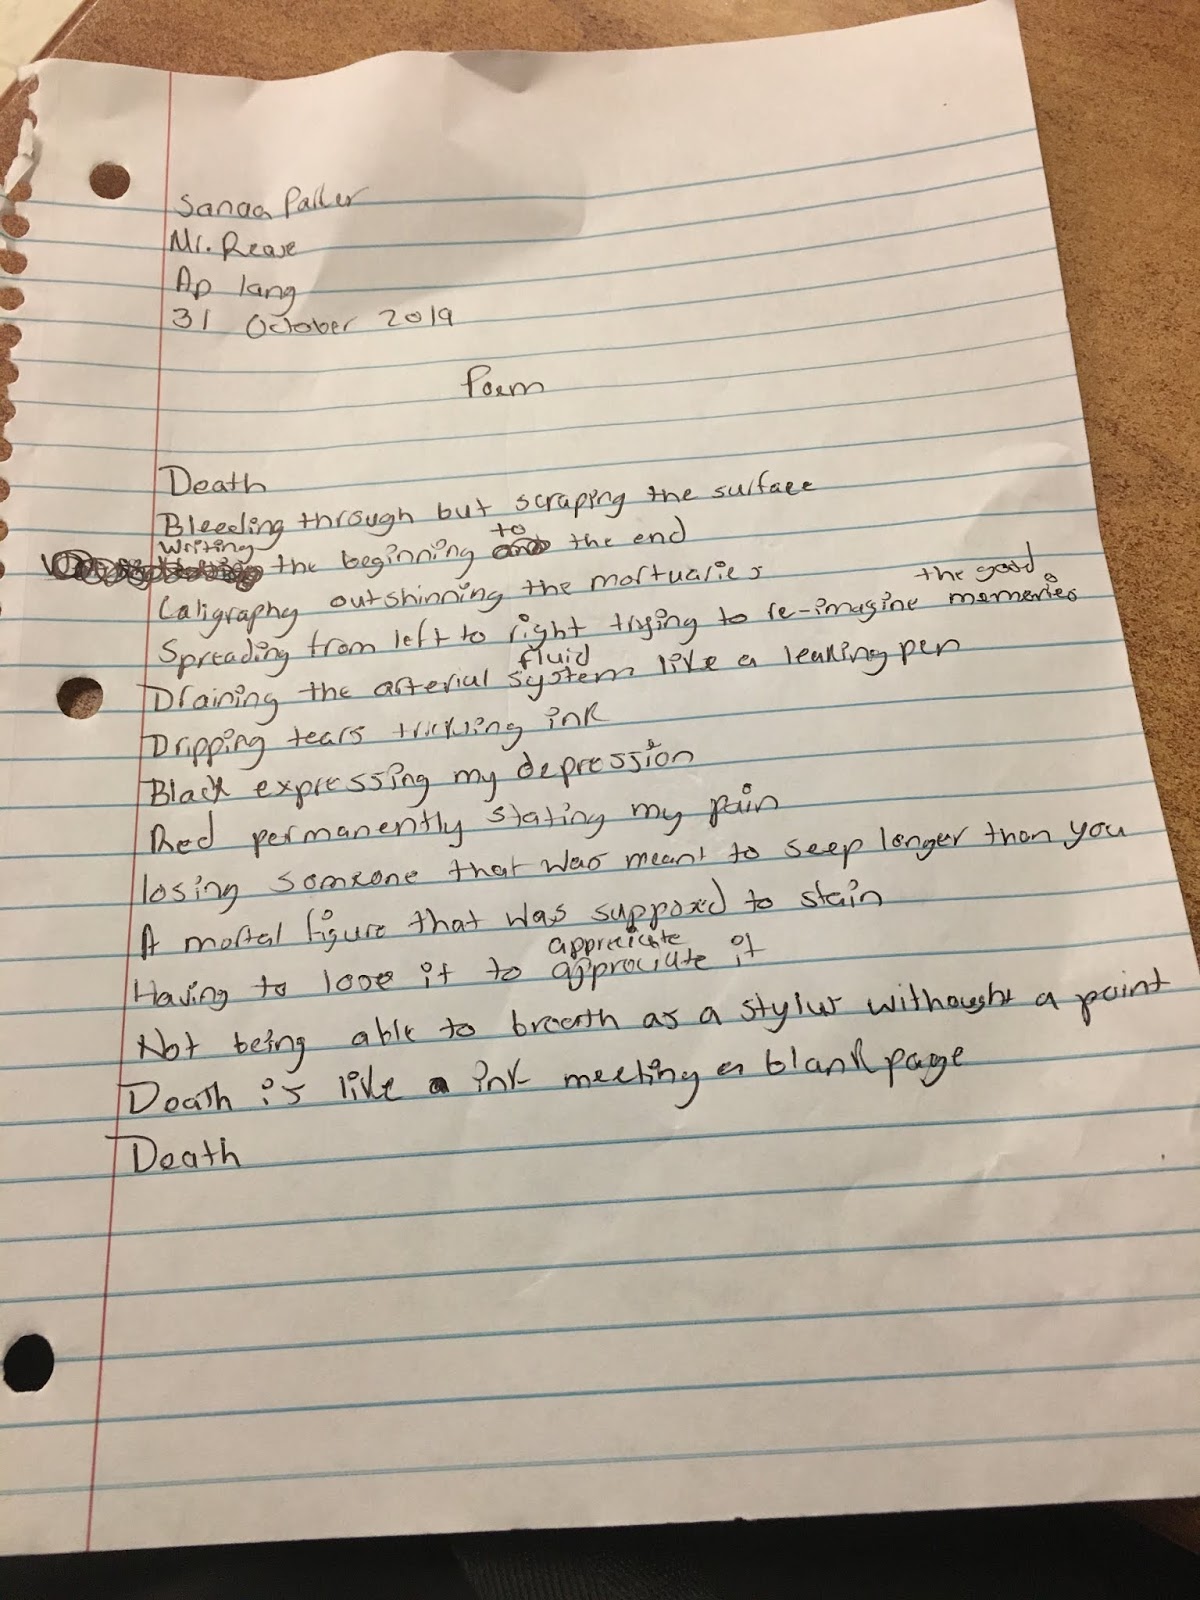 Sanaa Parker
Mr. Rease
Ap lang
31 October 2019
Poem
Death
Bleeding through but scraping the surface
Writing the beginning to the end
Caligraphy outshinning the mortuaries
Spreading from left to right trying to re-imagine the good memories
Draining the arterial fluid system like a leaking pen
Dripping tears trickling ink
Black expressing my depression
Red permanently stating my pain
losing someone that was meant to seep longer than you
A mortal figure that was supposed to stain
Having to lose it to appreciate it
Not being able to breath as a stylus withought a point
Death is like a ink meeting a blank page
Death